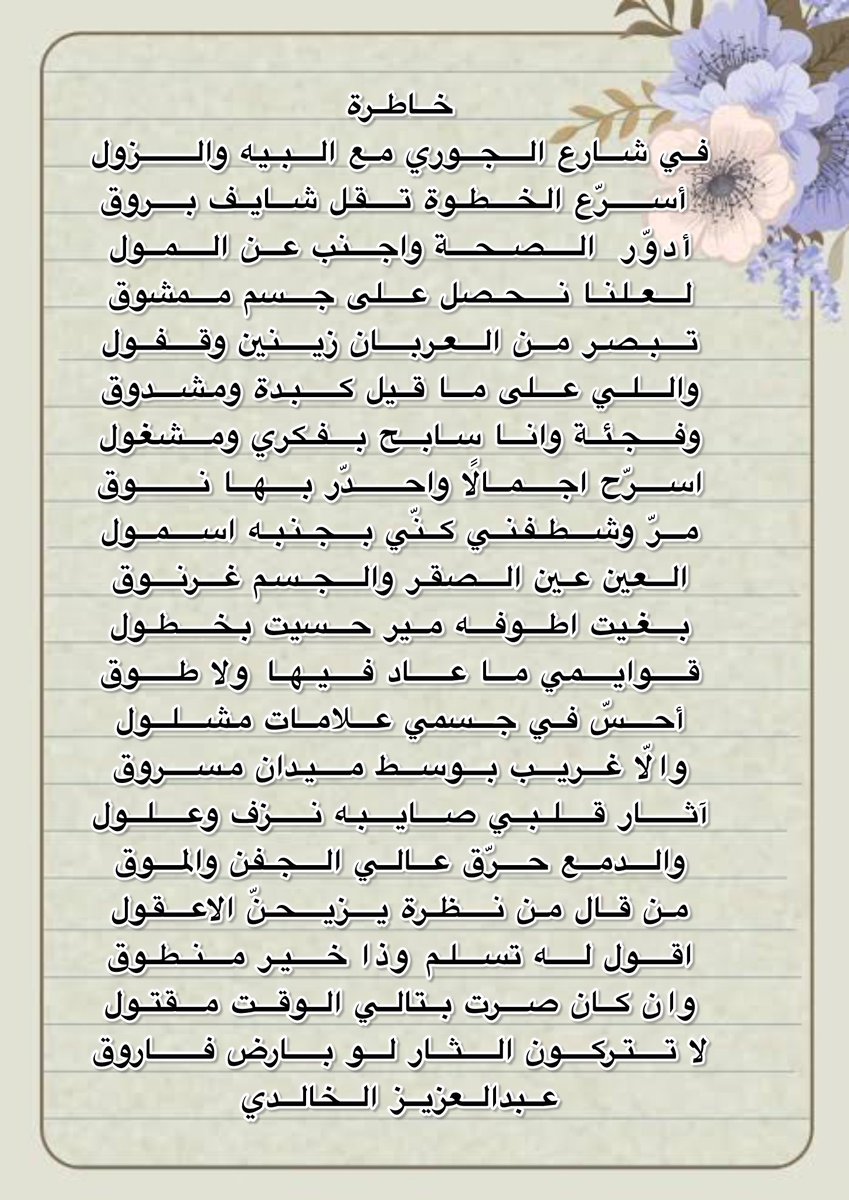 خاطرة
في شارع الجوري مع البيه والزول
أسرّع الخطوة تقل شايف بروق
أدوّر الصحة واجنب عن المول
لعلنا نحصل على جسم ممشوق
تبصر من العربان زينين وقفول
واللي على ما قيل كبدة ومشدوق
وفجئة وانا سابح بفكري ومشغول
اسرّح اجمالًا واحدّر بها نوق
مرّ وشطفني كنّي بجنبه اسمول
العين عين الصقر والجسم غرنوق
بغيت اطوفه مير حسيت بخطول
قوايمي ما عاد فيها ولا طوق
أحسّ في جسمي علامات مشلول
والّا غريب بوسط ميدان مسروق
آثار قلبي صايبه نزف وعلول
والدمع حرّق عالي الجفن والموق
من قال من نظرة يزيحنّ الاعقول
اقول له تسلم وذا خير منطوق
وان كان صرت بتالي الوقت مقتول
لا تتركون الثار لو بارض فاروق
عبدالعزيز الخالدي